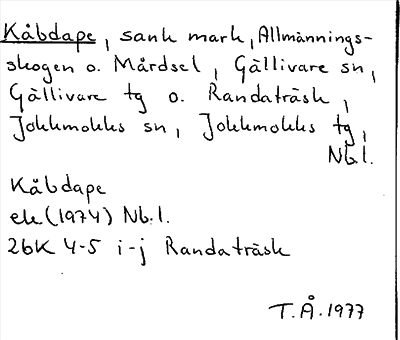 Kåbdape, sank mark, Allmännings-
skogen o. Mårdsel, Gällivare sn,
Gällivare tg o. Randaträsk,
Jokkmokks sn, Jokkmokks tg,
Nb l.
Kåbdape
ek (1974) Nb.l.
26K 4-5 i-j Randaträsk
T.Å. 1977